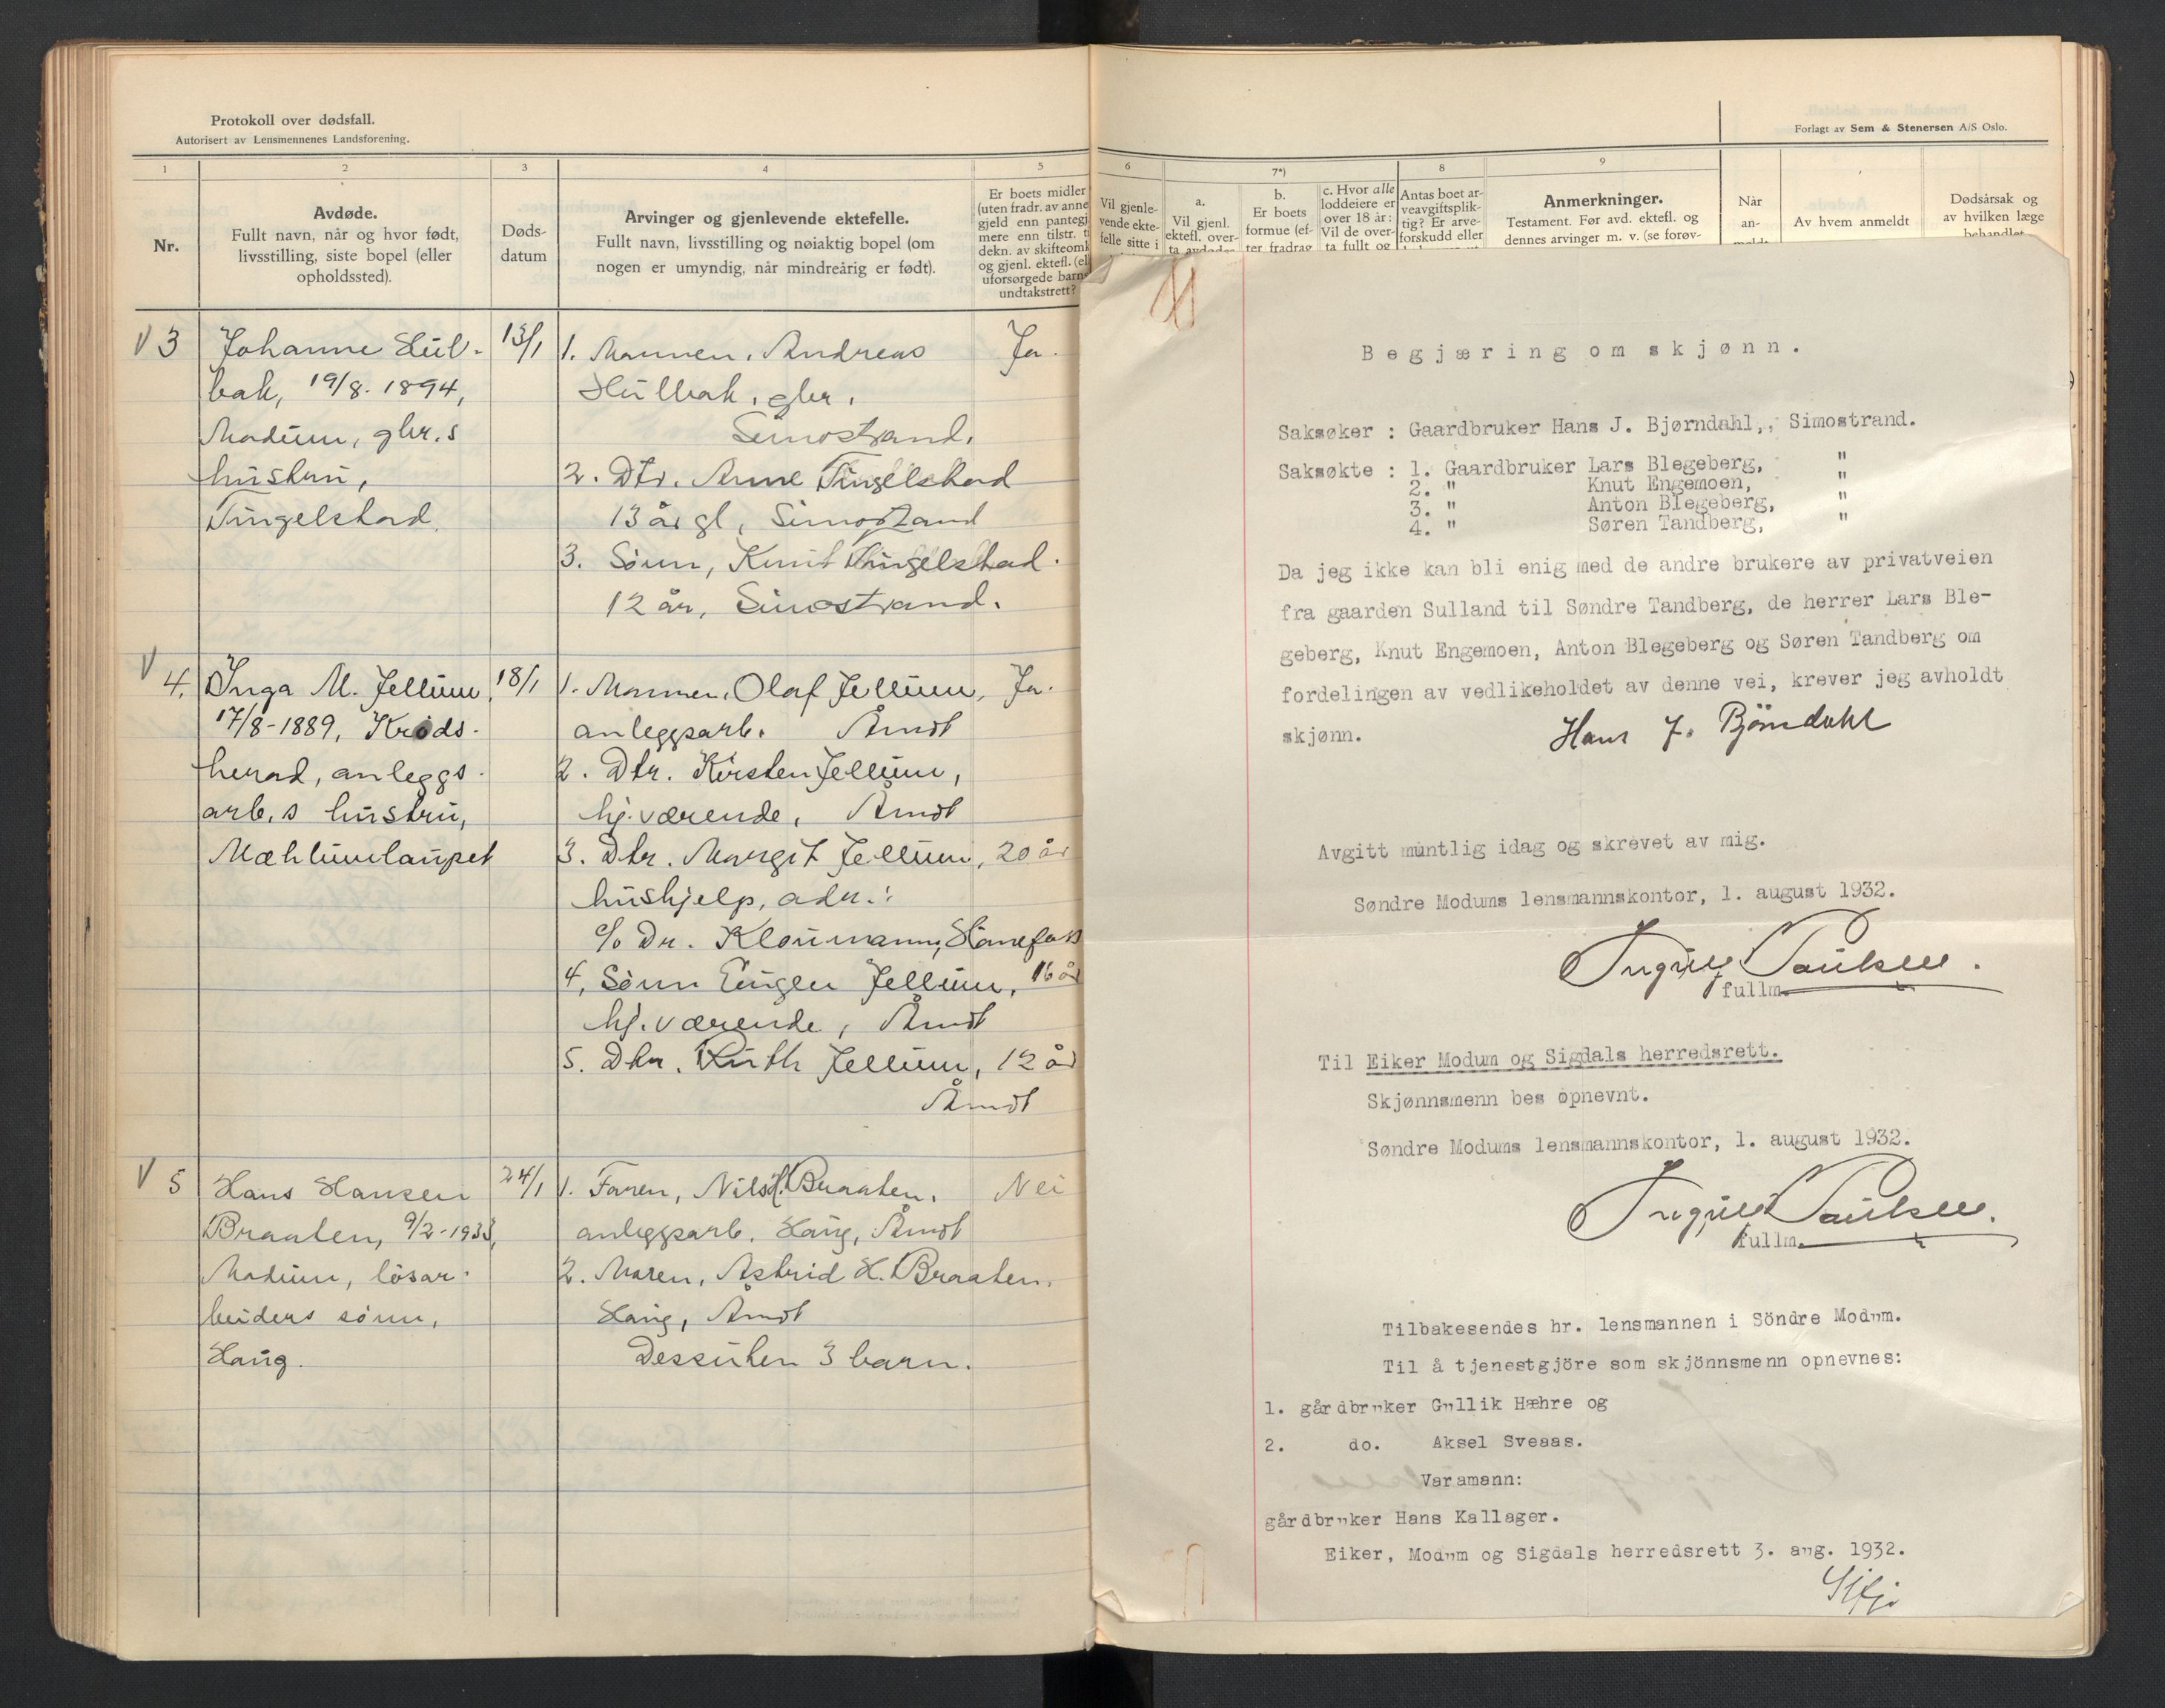 Protokoll over dødsfall.
Autorisert av Lensmennenes Landsforening.
1
2
3
4
5
Nr.
Avdøde.
Fullt navn, når og hvor født,
livsstilling, siste bopel (eller
opholdssted).
Døds-
datum
Arvinger og gjenlevende ektefelle.
Fullt navn, livsstilling og nøiaktig bopel (om
nogen er umyndig, når mindreårig er født).
Er boets midler
(uten fradr. av anne
gjeld enn pantegj
mere enn tilstr. t
dekn. av skifteomk
og gjenl. ektefl. (el
uforsørgede barns
undtakstrett?
V 3
Johanne Hul-
bak, 19/8. 1894,
Modum, gbr.s
hustru,
Tingelstad.
13/1
1. Mannen, Andreas
Hulbak, gbr,
Simostrand.
2. Dtr. Anne Tingelstad
13 år gl, Simostrand
3. Sönn, Knut Tingelstad.
12 år, Simostrand.
Ja.
V 4.
Inga M. Jellum,
17/8-1889, Kröds-
herad, anleggs-
arb.s hustru,
Mæhlumlaupet
18/1
1. Mannen, Olaf Jellum,
anleggsarb. Åmot
2. Dtr. Kirsten Jellum,
hj. værende, Åmot
3. Dtr. Margit Jellum, 20 år
hushjelp, adr.:
c/o Dr. Kloumann, Hönefoss
4, Sönn Eugen Jellum, 16 år
hj. værende, Åmot
5. Dtr. Ruth Jellum, 12 år
Åmot
Ja.
V 5
Hans Hansen
Braaten, 9/2-1933,
Modum, lösar-
beiders sönn,
Haug.
24/1
1. Faren, Nils H. Braaten,
anleggsarb. Haug, Åmot
2. Moren, Astrid H. Braaten.
Haug, Åmot
Dessuten 3 barn.
Nei
Forlagt av Sem & Stenersen A/S Oslo.
6
7*)
8
9
Vil gjenle-
vende ekte-
felle sitte i
a.
Vil gjenl.
ektefl. over-
ta avdødes
b.
Er boets
formue (ef-
ter fradrag
c. Hvor alle
loddeiere er
over 18 år:
Vil de over-
ta fullt og
Antas boet ar-
veavgiftsplik-
tig? Er arve-
forskudd eller
Anmerkninger.
Testament. Før avd. ektefl. og
dennes arvinger m. v. (se forøv-
Når
an-
meldt
Av hvem anmeldt
Dødsårsak og
av hvilken læge
behandlet
Begjæring om skjønn.
Saksøker : Gaardbruker Hans J. Bjørndahl,, Simostrand.
Saksøkte : 1. Gaardbruker Lars Blegeberg, "
2. " Knut Engemoen, "
3. " Anton Blegeberg, "
4. " Søren Tandberg, "
Da jeg ikke kan bli enig med de andre brukere av privatveien
fra gaarden Sulland til Søndre Tandberg, de herrer Lars Ble-
geberg, Knut Engemoen, Anton Blegeberg og Søren Tandberg om
fordelingen av vedlikeholdet av denne vei, krever jeg avholdt
skjønn.
Hans J. Björndahl
Avgitt muntlig idag og skrevet av mig.
Søndre Modums lensmannskontor, 1. august 1932.
Paulsen.
fullm.
Til Eiker Modum og Sigdals herredsrett.
Skjønnsmenn bes opnevnt.
Søndre Modums lensmannskontor, 1. august 1932.
Paulsen.
fullm.
Tilbakesendes hr. lensmannen i Söndre Modum.
Til å tjenestgjöre som skjönnsmenn opnevnes:
1. gårdbruker Gullik Hæhre og
2. do. Aksel Sveaas.
Varamann:
gårdbruker Hans Kallager.
Eiker, Modum og Sigdals herredsrett 3. aug. 1932.